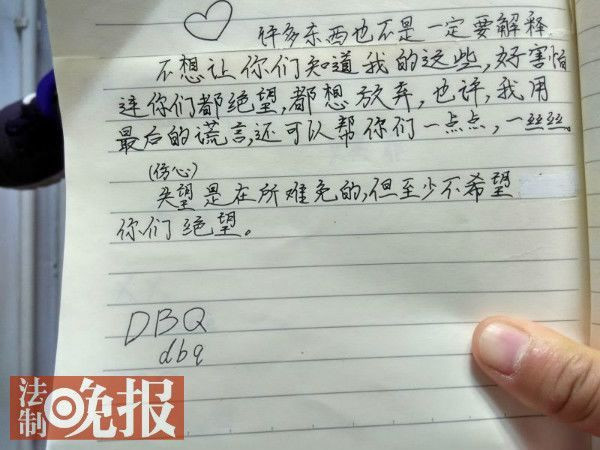 许多东西也不是一定要解释,
不想让你们知道我的这些,好害怕
连你们都绝望,都想放弃,也许,我用
最后的谎言,还可以帮你们一点点,一丝丝。
(伤心)
失望是在所难免的,但至少不希望
你们绝望。
DBQ
dbq
法制晚报